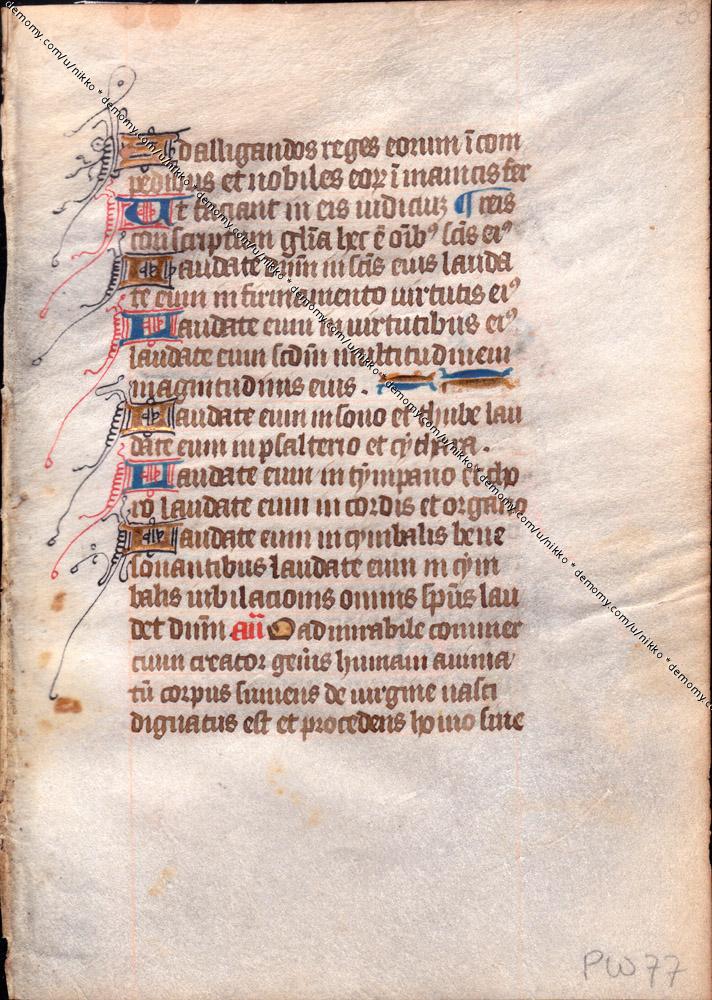 Ad alligandos reges eorum ī com
pedibus et nobiles eoꝝ ī manicis fer
Ut faciant in eis iudiciuꝫ ¶reis
conscriptum gl̄ia hec ē oīb⁹ sc̄is ei⁹
Laudate dn̄m in sc̄is eius lauda
te eum in firmamento uirtutis ei⁹
Laudate eum in uirtutibus ei⁹
laudate eum scd̄m multitudinem
magnitudinis eius .
Laudate eum in sono et thube lau
date eum in psalterio et cythara .
Laudate eum in tympano et cho
ro laudate eum in cordis et organo
Laudate eum in cymbalis bene
sonantibus laudate eum in cym
balis iubilacionis omnis sp̄us lau
det dn̄m an̄ O admirabile commer
cium creator gen̄is humani anima
tū corpus sumens de uirgine nasci
dignatus est et procedens homo sine
PW77
30
demomy.com/u/nikko * demomy.com/u/nikko * demomy.com/u/nikko * demomy.com/u/nikko * demomy.com/u/nikko * demomy.com/u/nikko * demomy.co